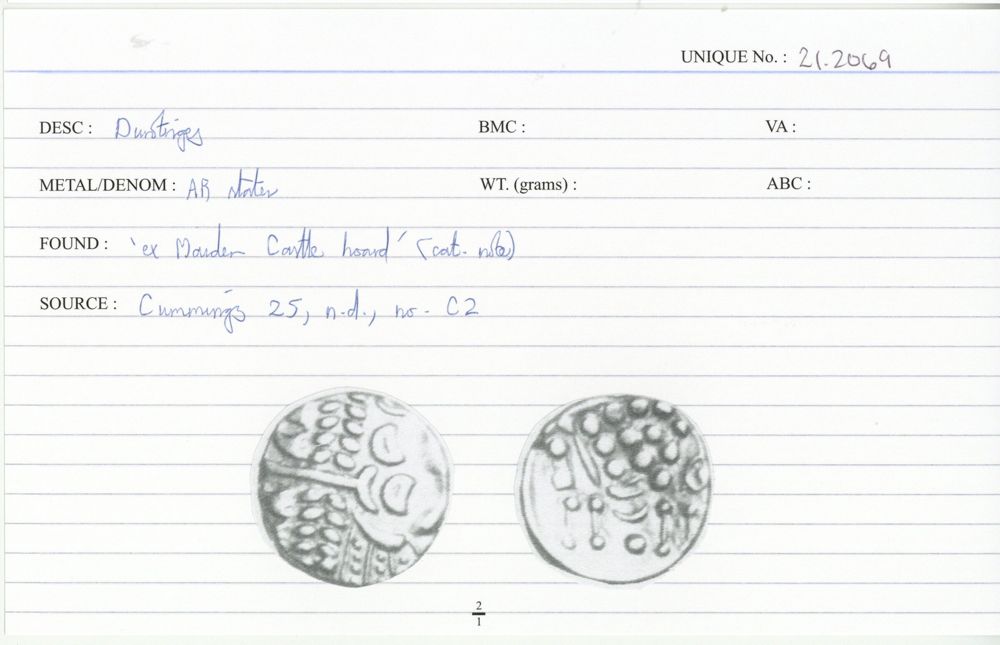 UNIQUE No. : 21.2069
DESC : Durotriges BMC : VA :
METAL/DENOM : AR stater WT. (grams) : ABC :
FOUND : 'ex Maiden Castle hoard' (cat. note)
SOURCE : Cummings 25, n.d., no. C2
2
1